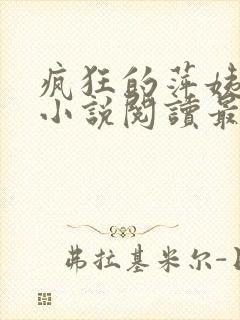 疯狂的萍姊
小説閱讀最
弗拉基米尔-